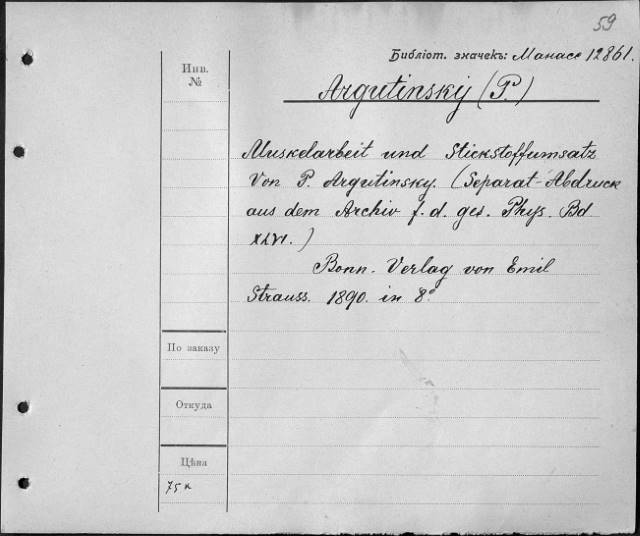 59
Библіот. значекъ: Манасе 12861.
Инв.
№
Argutinskij (P.)
Muskelarbeit und Stickstoffumsatz
Von P. Argutinsky. (Separat-Abdruck
aus dem Archiv f. d. ges. Phys. Bd
XLVI.)
Bonn. Verlag von Emil
Strauss. 1890. in 8°
По заказу
Откуда
Цѣна
75 к